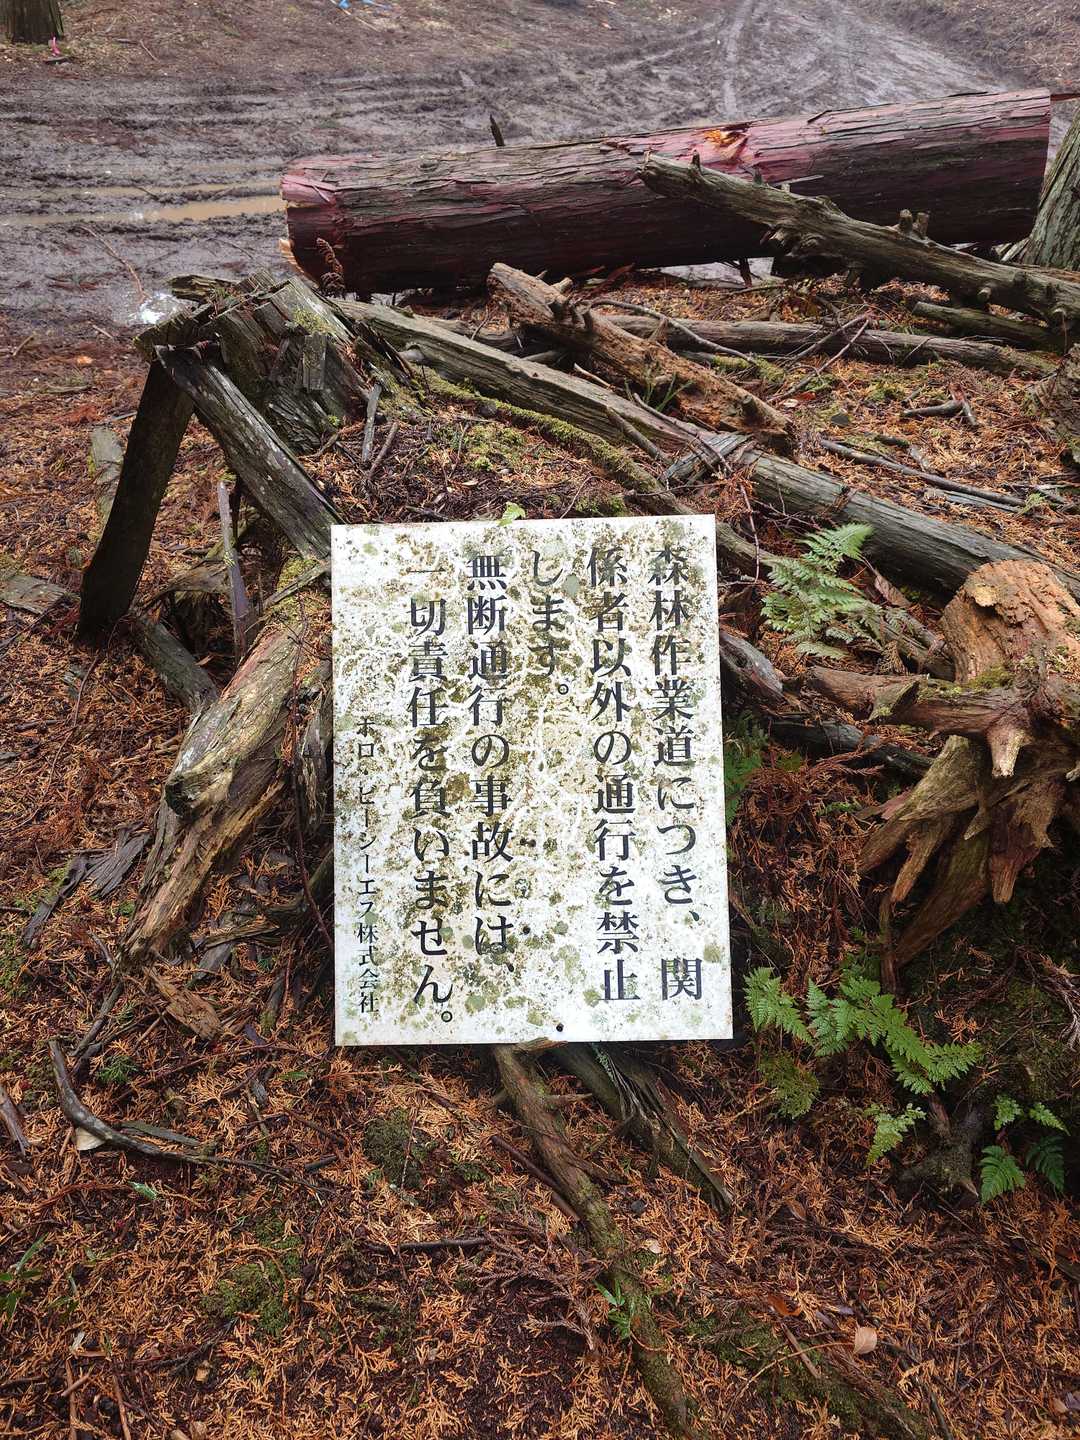 森林作業道につき、関
係者以外の通行を禁止
します。
無断通行の事故には、
一切責任を負いません。
ホロ・ビーシーエフ株式会社